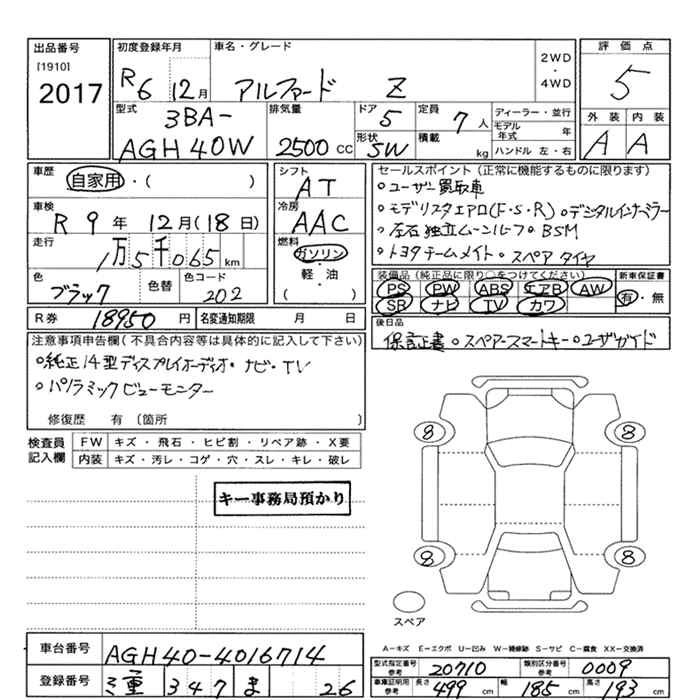 出品番号
[1910]
2017
初度登録年月
R6 12月
車名・グレード
アルファード Z
2WD
・
4WD
評価点
5
型式
3BA-
AGH40W
排気量
2500 CC
ドア
5
形状
5W
定員
7 人
積載
kg
ディーラー・並行
モデル年式 年
ハンドル 左・右
外装 内装
A A
車歴
自家用・( )
車検
R 9 年 12 月 ( 18 日)
走行
1万5千065 km
色
ブラック
色替
色コード
202
シフト
AT
冷房
AAC
燃料
ガソリン
・
軽・油
( )
セールスポイント(正常に機能するものに限ります)
○ユーザー買取車
○モデリスタエアロ(F・S・R) ○デジタルインナーミラー
○左右独立ムーンルーフ ○BSM
○トヨタチームメイト ○スペアタイヤ
装備品(純正品に限り○をつけてください)
PS PW ABS エアB AW
SR ナビ TV カワ
新車保証書
有・無
R券 18950 円
名変通知期限 月 日
後日品
保証書 ○スペアースマートキー ○ユーザーガイド
注意事項申告欄(不具合内容等は具体的に記入して下さい)
○純正14型ディスプレイオーディオ・ナビ・TV
○パノラミックビューモニター
修復歴 有〔箇所 〕
検査員
記入欄
FW キズ・飛石・ヒビ割・リペア跡・X要
内装 キズ・汚レ・コゲ・穴・スレ・キレ・破レ
キー事務局預かり
8 8
8 8
スペア
A－キズ E－エクボ U－凹み W－補修跡 S－サビ C－腐食 XX－交換済
車台番号
AGH40-4016714
登録番号
三重 347 ま 26
型式指定番号
参考
20710
類別区分番号
参考
0009
車庫証明用
参考
長さ 499 cm
幅 185 cm
高さ 193 cm